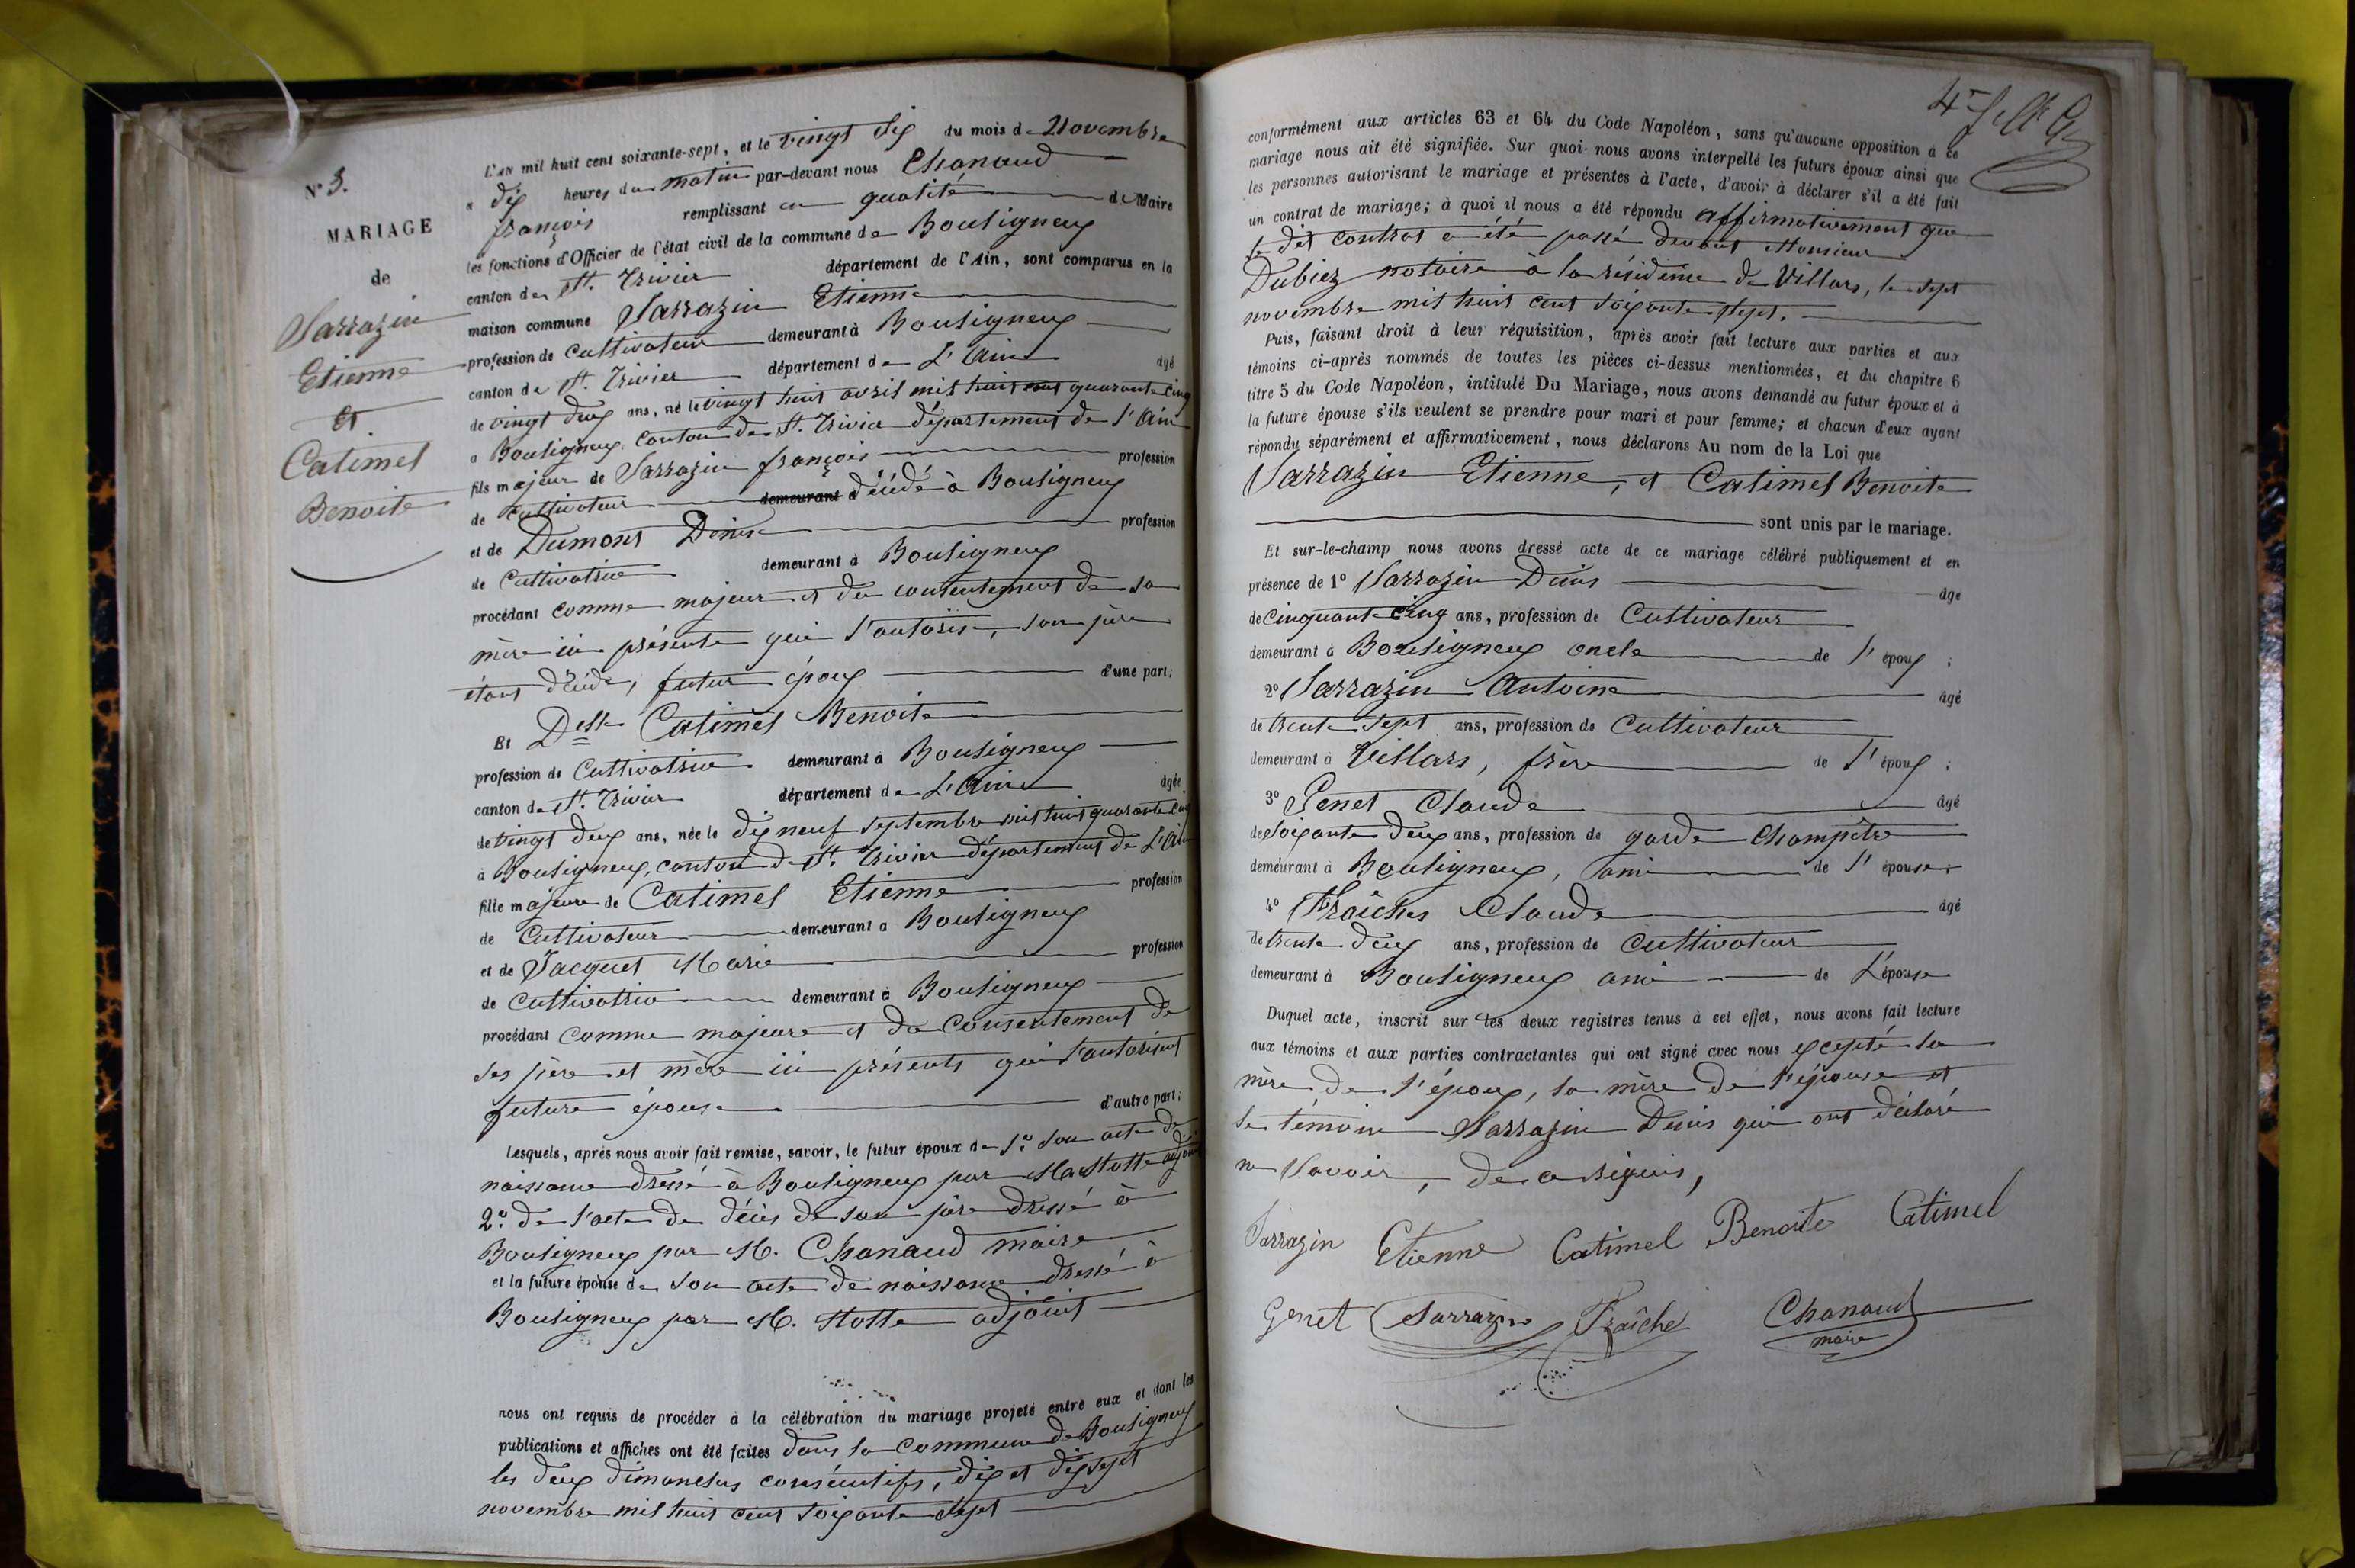 N° 3.
MARIAGE
de
Sarrazin
Etienne
et
Catimel
Benoite
L'AN mil huit cent soixante-sept, et le vingt six du mois de Novembre
à dix heures du matin par-devant nous Chanaud
françois remplissant en qualité de Maire
les fonctions d'Officier de l'état civil de la commune de Bouligneux
canton de St. Trivier département de l'Ain, sont comparus en la
maison commune Sarrazin Etienne
profession de Cultivateur demeurant à Bouligneux
canton de St. Trivier département de L'Ain âgé
de vingt deux ans, né le vingt huit avril mil huit cent quarante cinq
à Bouligneux, canton de St. Trivier département de l'Ain
fils majeur de Sarrazin françois profession
de Cultivateur demeurant décédé à Bouligneux
et de Dumont Denise profession
de Cultivatrice demeurant à Bouligneux
procédant comme majeur et du consentement de sa
mère ici présente qui l'autorise, son père
étant décédé, futur époux d'une part;
Et Delle Catimel Benoite
profession de Cultivatrice demeurant à Bouligneux
canton de St. Trivier département de L'Ain âgée
de vingt deux ans, née le dix neuf septembre mil huit quarante cinq
à Bouligneux, canton de St. Trivier département de L'Ain
fille majeure de Catimel Etienne profession
de Cultivateur demeurant à Bouligneux
et de Jacquet Marie profession
de Cultivatrice demeurant à Bouligneux
procédant comme majeure et du consentement de
ses père et mère ici présents qui l'autorisent
future épouse d'autre part;
Lesquels, après nous avoir fait remise, savoir, le futur époux de 1° son acte de
naissance dressé à Bouligneux par M. Stotte adjoint
2° de l'acte de décès de son père dressé à
Bouligneux par M. Chanaud maire
et la future épouse de son acte de naissance dressé à
Bouligneux par M. Stotte adjoint
nous ont requis de procéder à la célébration du mariage projeté entre eux et dont les
publications et affiches ont été faites dans la commune de Bouligneux
les deux dimanches consécutifs, dix et dix sept
novembre mil huit cent soixante sept
conformément aux articles 63 et 64 du Code Napoléon, sans qu'aucune opposition à ce
mariage nous ait été signifiée. Sur quoi nous avons interpellé les futurs époux ainsi que
les personnes autorisant le mariage et présentes à l'acte, d'avoir à déclarer s'il a été fait
un contrat de mariage; à quoi il nous a été répondu affirmativement que
le dit contrat a été passé devant Monsieur
Dubiez notaire à la résidence de Villars, le sept
novembre mil huit cent soixante sept.
Puis, faisant droit à leur réquisition, après avoir fait lecture aux parties et aux
témoins ci-après nommés de toutes les pièces ci-dessus mentionnées, et du chapitre 6
titre 5 du Code Napoléon, intitulé Du Mariage, nous avons demandé au futur époux et à
la future épouse s'ils veulent se prendre pour mari et pour femme; et chacun d'eux ayant
répondu séparément et affirmativement, nous déclarons Au nom de la Loi que
Sarrazin Etienne, et Catimel Benoite
sont unis par le mariage.
Et sur-le-champ nous avons dressé acte de ce mariage célébré publiquement et en
présence de 1° Sarrazin Denis âgé
de Cinquante Cinq ans, profession de Cultivateur
demeurant à Bouligneux oncle de l'époux;
2° Sarrazin Antoine âgé
de trente sept ans, profession de Cultivateur
demeurant à Villars, frère de l'époux;
3° Genet Claude âgé
de soixante deux ans, profession de garde Champêtre
demeurant à Bouligneux, ami de l'épouse
4° Fraîche Claude âgé
de trente deux ans, profession de Cultivateur
demeurant à Bouligneux ami de L'épouse
Duquel acte, inscrit sur les deux registres tenus à cet effet, nous avons fait lecture
aux témoins et aux parties contractantes qui ont signé avec nous excepté la
mère de l'époux, la mère de l'épouse et
le témoin Sarrazin Denis qui ont déclaré
ne savoir, de ce requis,
Sarrazin Etienne Catimel Benoite Catimel
Genet Sarrazin Fraîche Chanaud
maire